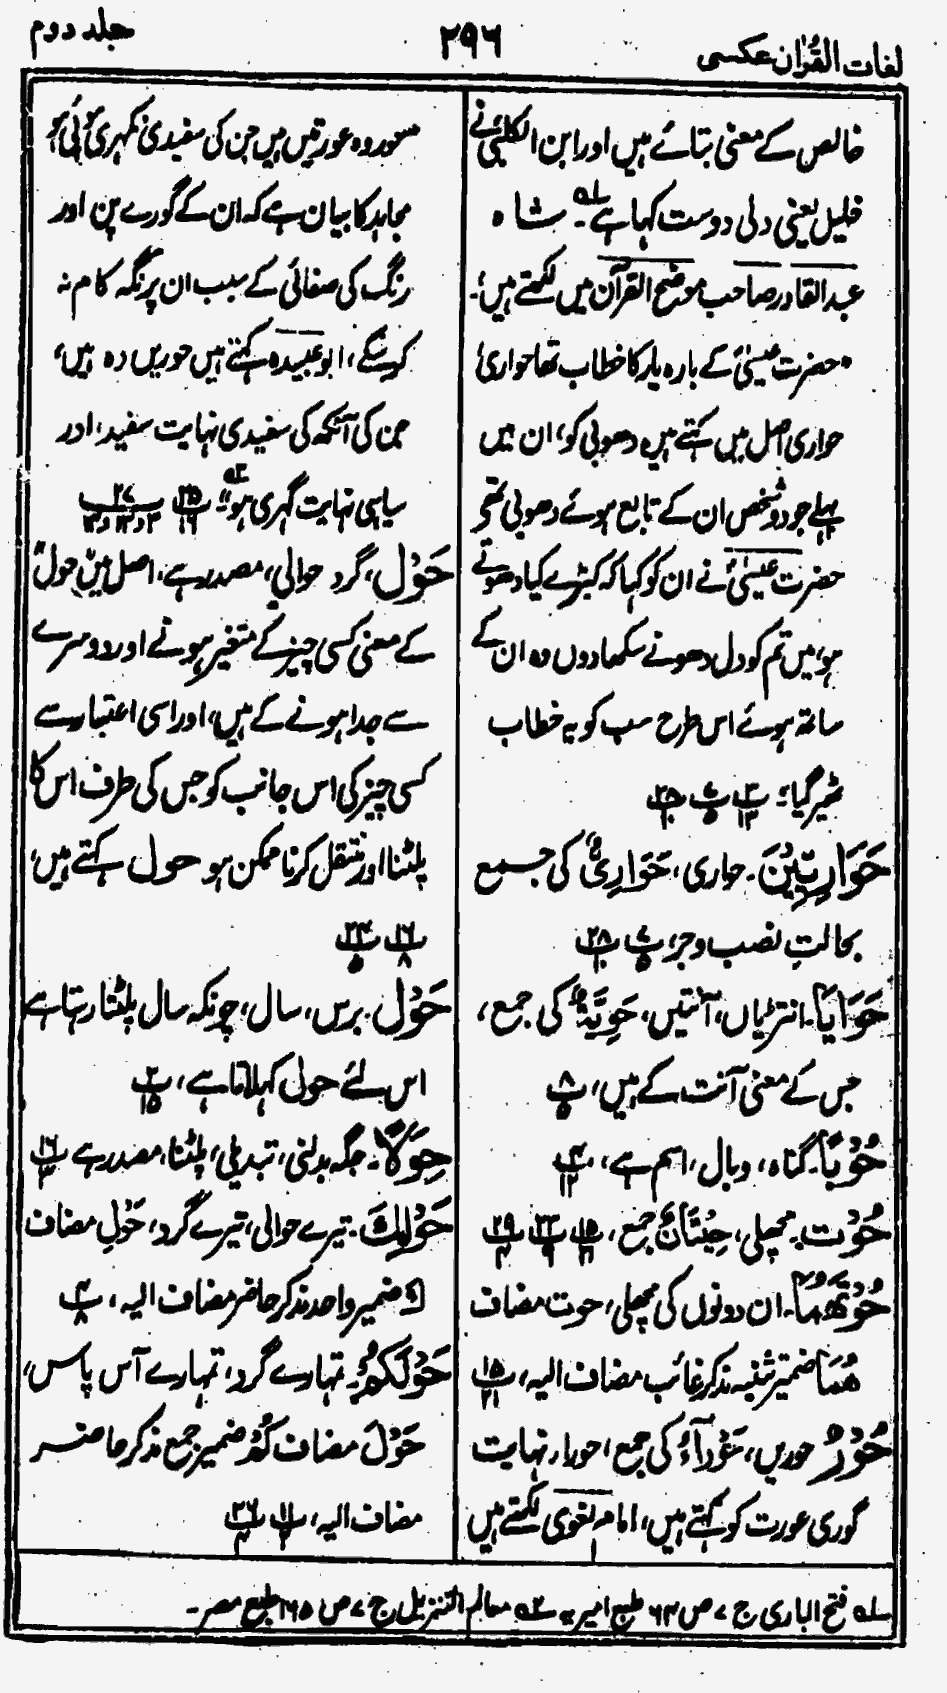 لغات القرآن عکسی
۲۹۶
جلد دوم
خالص کے معنی بتائے ہیں اور ابن الکلبیؒ نے
خلیل یعنی دلی دوست کہا ہے۔ ۱ه شاہ
عبدالقادر صاحب موضح القرآن میں لکھتے ہیں؛۔
"حضرت عیسیٰؑ کے بارہ یار کا خطاب تھا حواریؑ
حواری اصل میں کہتے ہیں دھوبی کو، ان میں
پہلے جو دو شخص ان کے تابع ہوئے دھوبی تھے
حضرت عیسیٰؑ نے ان کو کہا کہ کپڑے کیا دھوتے
ہو، میں تم کو دل دھونے سکھا دوں وہ ان کے
ساتھ ہوئے اس طرح سب کو یہ خطاب
ٹھیر گیا"؛ پ۳/۱۳ پ۷/۵ پ۲۸/۱۰
حَوَارِیِّیْنَ۔ حواری، حَوَارِیٌّ کی جمع
بحالتِ نصب وجر؛ پ۷/۵ پ۲۸/۱۰
حَوَایَا۔ انتڑیاں، آنتیں، حَوِیَّۃٌ کی جمع،
جس کے معنی آنت کے ہیں، پ۸/۵
حُوْبًا۔ گناہ، وبال، اسم ہے، پ۴/۱۲
حُوْت۔ مچھلی، حِیْتَانٌ جمع، پ۱۵/۲۱ پ۲۳/۹ پ۲۹/۴
حُوْتَهُمَا۔ ان دونوں کی مچھلی، حوت مضاف
هُمَا ضمیر تثنیہ مذکر غائب مضاف الیہ، پ۱۵/۲۱
حُوْرٌ حوریں، حَوْرَآءُ کی جمع، حوراء نہایت
گوری عورت کو کہتے ہیں، امام بغوی لکھتے ہیں
حور وہ عورتیں ہیں جن کی سفیدی نکھری ہوئی ہو
مجاہد کا بیان ہے کہ ان کے گورے پن اور
رنگ کی صفائی کے سبب ان پر نگہ کام نہ
کر سکے، ابو عبیدہ کہتے ہیں حوریں وہ ہیں،
جن کی آنکھ کی سفیدی نہایت سفید، اور
سیاہی نہایت گہری ہو"؛ ۲ه پ۲۵/۱۶ پ۲۷/۳و۱۳و۱۴
حَوْل، گرد حوالی، مصدر ہے، اصل میں حول"
کے معنی کسی چیز کے متغیر ہونے اور دوسرے
سے جدا ہونے کے ہیں، اور اسی اعتبار سے
کسی چیز کی اس جانب کو جس کی طرف اس کا
پلٹنا اور منتقل کرنا ممکن ہو حول کہتے ہیں،
پ۱۶/۸ پ۲۴/۵
حَوْل۔ برس، سال، چونکہ سال پلٹتا رہتا ہے
اس لئے حول کہلاتا ہے، پ۲/۱۵
حِوَلًا۔ جگہ بدلنی، تبدیلی، پلٹنا، مصدر ہے پ۱۶/۳
حَوْلِكَ۔ تیرے حوالی، تیرے گرد، حَوْلِ مضاف
كَ ضمیر واحد مذکر حاضر مضاف الیہ، پ۴/۸
حَوْلَكُمْ۔ تمہارے گرد، تمہارے آس پاس،
حَوْلَ مضاف كُمْ ضمیر جمع مذکر حاضر
مضاف الیہ، پ۱۱/۲ پ۲۶/۳
۱ه فتح الباری ج ۷ ص ۶۴ طبع امیریہ ۲ه معالم التنزیل ج ۷ ص ۱۶۵ طبع مصر۔